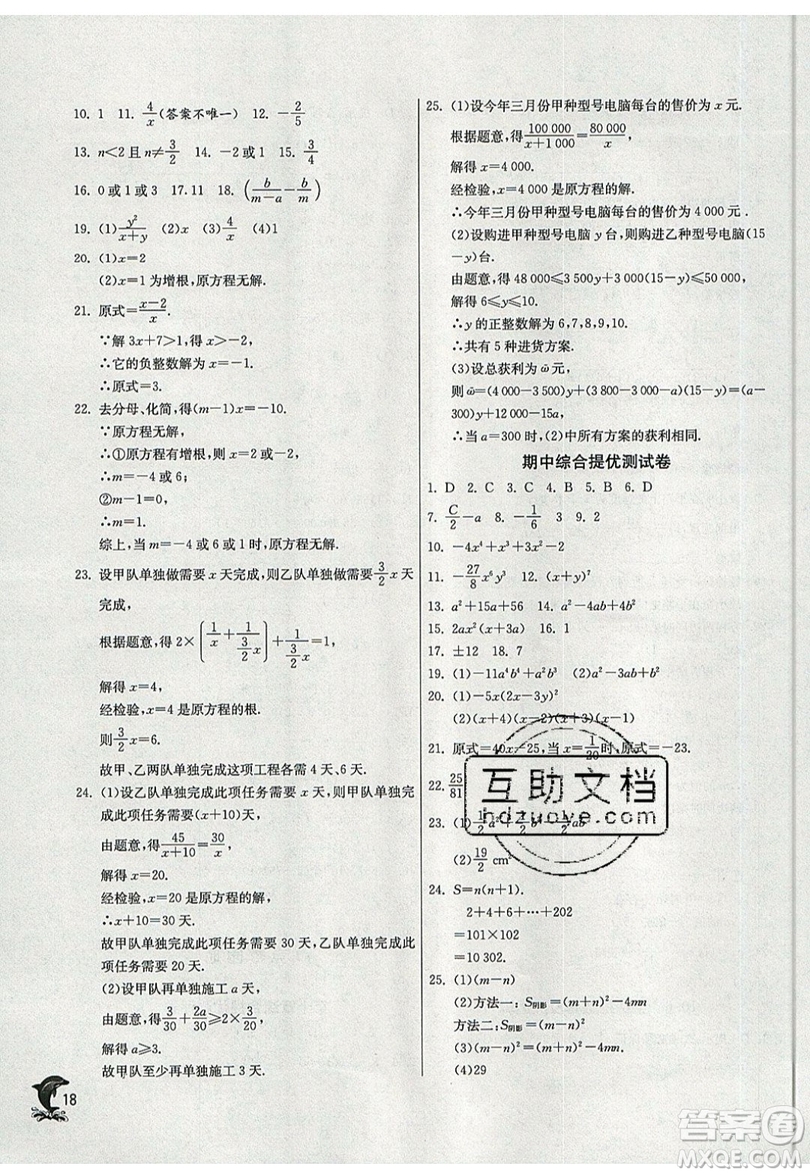 10. 1　11. 4/x(答案不唯一)　12. −2/5
13. n<2 且 n≠3/2　14. −2　15. 3/4
16. 0 或 1 或 3　17. 11　18. (b/(m−a)−b/m)
19. (1)y²/(x+y)　(2)x　(3)4/x　(4)1
20. (1)x=2
(2)x=1 为增根，原方程无解.
21. 原式=(x−2)/x.
∵解 3x+7>1，得 x>−2，
∴它的负整数解为−1，
∴原式=3.
22. 去分母、化简，得(m−1)x=−10.
∵原方程无解，
∴①原方程有增根，则 x=−2 或 x=2，
∴m=−4 或 6；
②m−1=0，
∴m=1.
综上，当 m=−4 或 6 或 1 时，原方程无解.
23. 设甲队单独做需要 x 天完成，则乙队单独做需要 3/2 x 天
完成，
根据题意，得 2×(1/x+1/(3/2 x))+1/(3/2 x)=1，
解得 x=4，
经检验，x=4 是原方程的根.
则 3/2 x=6.
故甲、乙两队单独完成这项工程各需 4 天、6 天.
24. (1)设乙队单独完成此项任务需要 x 天，则甲队单独完
成此项任务需要(x+10)天，
由题意，得 45/(x+10)=30/x，
解得 x=20.
经检验，x=20 是原方程的解，
∴x+10=30 天.
故甲队单独完成此项任务需要 30 天，乙队单独完成此
项任务需要 20 天.
(2)设甲队再单独施工 a 天，
由题意，得 3/30+2a/30≥2×3/20，
解得 a≥3.
故甲队至少再单独施工 3 天.
18
25. (1)设今年三月份甲种型号电脑每台的售价为 x 元.
根据题意，得 100 000/(x+1 000)=80 000/x，
解得 x=4 000，
经检验，x=4 000 是原方程的解.
∴今年三月份甲种型号电脑每台的售价为 4 000 元.
(2)设购进甲种型号电脑 y 台，则购进乙种型号电脑(15
−y)台.
由题意，得 48 000≤3 500y+3 000(15−y)≤50 000，
解得 6≤y≤10.
∴y 的正整数解为 6,7,8,9,10.
∴共有 5 种进货方案.
(3)设总获利为 ω̄ 元，
则 ω̄=(4 000−3 500)y+(3 800−3 000−a)(15−y)=(a−
300)y+12 000−15a，
∴当 a=300 时，(2)中所有方案的获利相同.
期中综合提优测试卷
1. D　2. C　3. C　4. B　5. B　6. D
7. C/2−a　8. −1/6　3　9. 2
10. −4x⁴+4x²−x
11. −27/8x⁶y³　12. (x+y)²
13. a²+15a+56　14. a²−4ab+4b²
15. 2ax²(x+3a)　16. 1
17. ±12　18. 7
19. (1)−11a⁴b⁴+a²b³　(2)a²−3ab+b²
20. (1)−3x(5x−2y)²
(2)(x+4)(x−2)(x+3)(x−1)
21. 原式=40x−25，当 x=1/20 时，原式=−23.
22. 25/81
23. (1)1/2a²+1/2b²−1/2ab
(2)19/2 cm²
24. S=n(n+1).
2+4+6+…+202
=101×102
=10 302.
25. (1)(m−n)
(2)方法一：S阴影=(m+n)²−4mn
方法二：S阴影=(m−n)²
(3)(m−n)²=(m+n)²−4mn
(4)29
互助文档
hdzuowe.com
答案圈
MXQE.COM